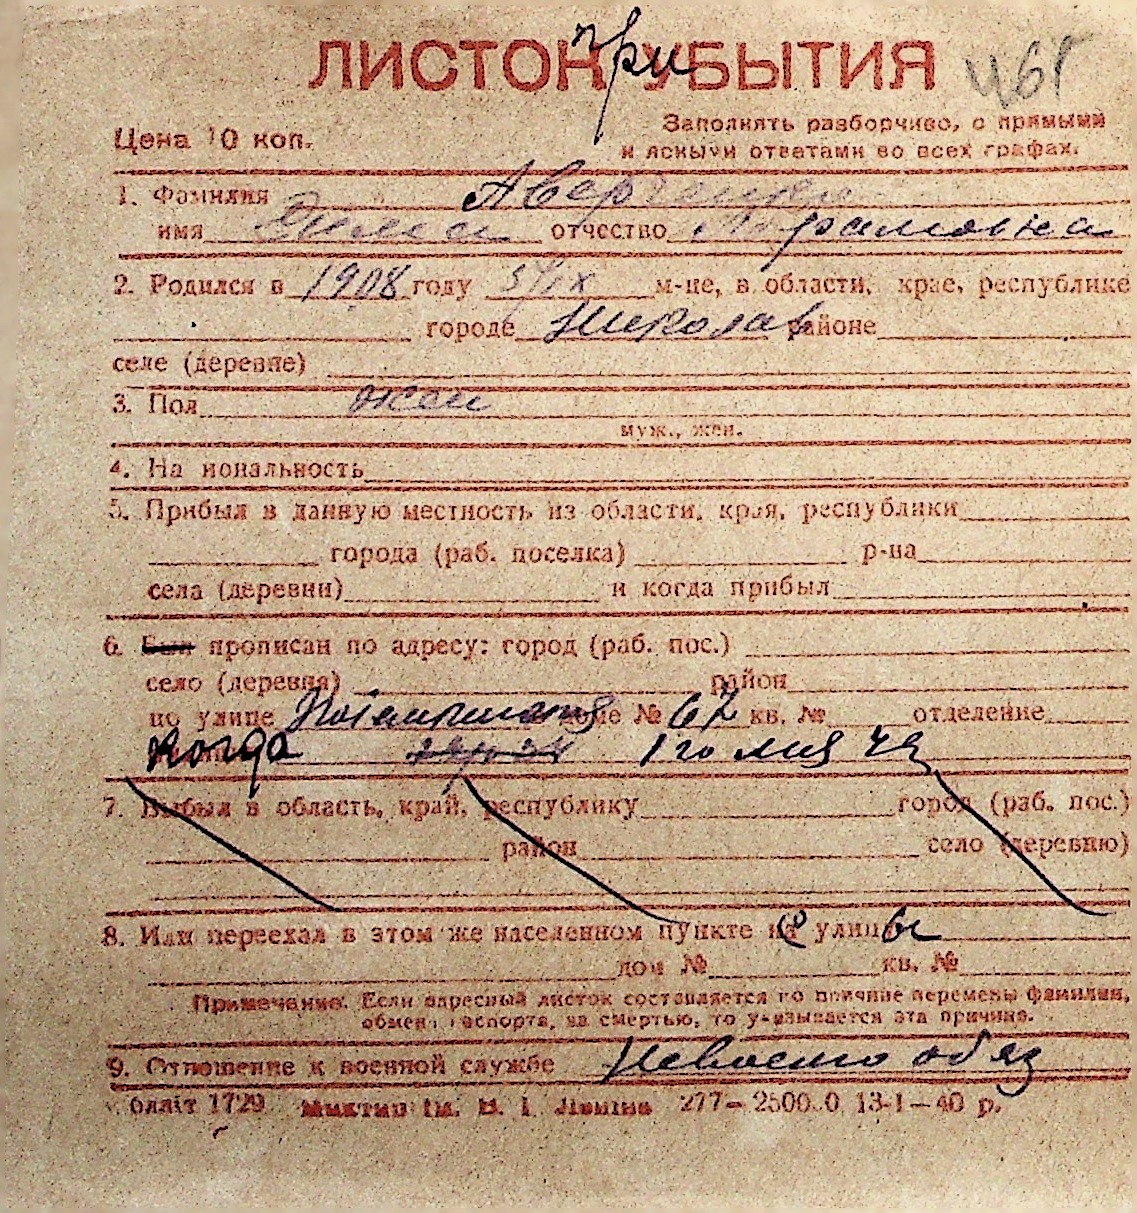 ЛИСТОК при УБЫТИЯ
Цена 10 коп.
Заполнять разборчиво, с прямыми
и ясными ответами во всех графах.
1. Фамилия
имя отчество Абрамовна
2. Родился в 1908 году 5/IX м-це, в области, крае, республике
городе Николаев районе
селе (деревне)
3. Пол жен
муж., жен.
4. На иональность
5. Прибыл в данную местность из области, края, республики
города (раб. поселка) р-на
села (деревни) и когда прибыл
6. Был прописан по адресу: город (раб. пос.)
село (деревня) район
по улице доме № 67 кв. № отделение
Когда 1го мая
7. Выбыл в область, край, республику город (раб. пос.)
район село (деревню)
8. Или переехал в этом же населенном пункте с улицы
дом № кв. №
Примечание. Если адресный листок составляется по причине перемены фамилии,
обмена паспорта, за смертью, то указывается эта причина.
9. Отношение к военной службе Невоенно обяз
болліт 1729 Миктип ім. В. І. Леніна 277— 13-1—40 р.